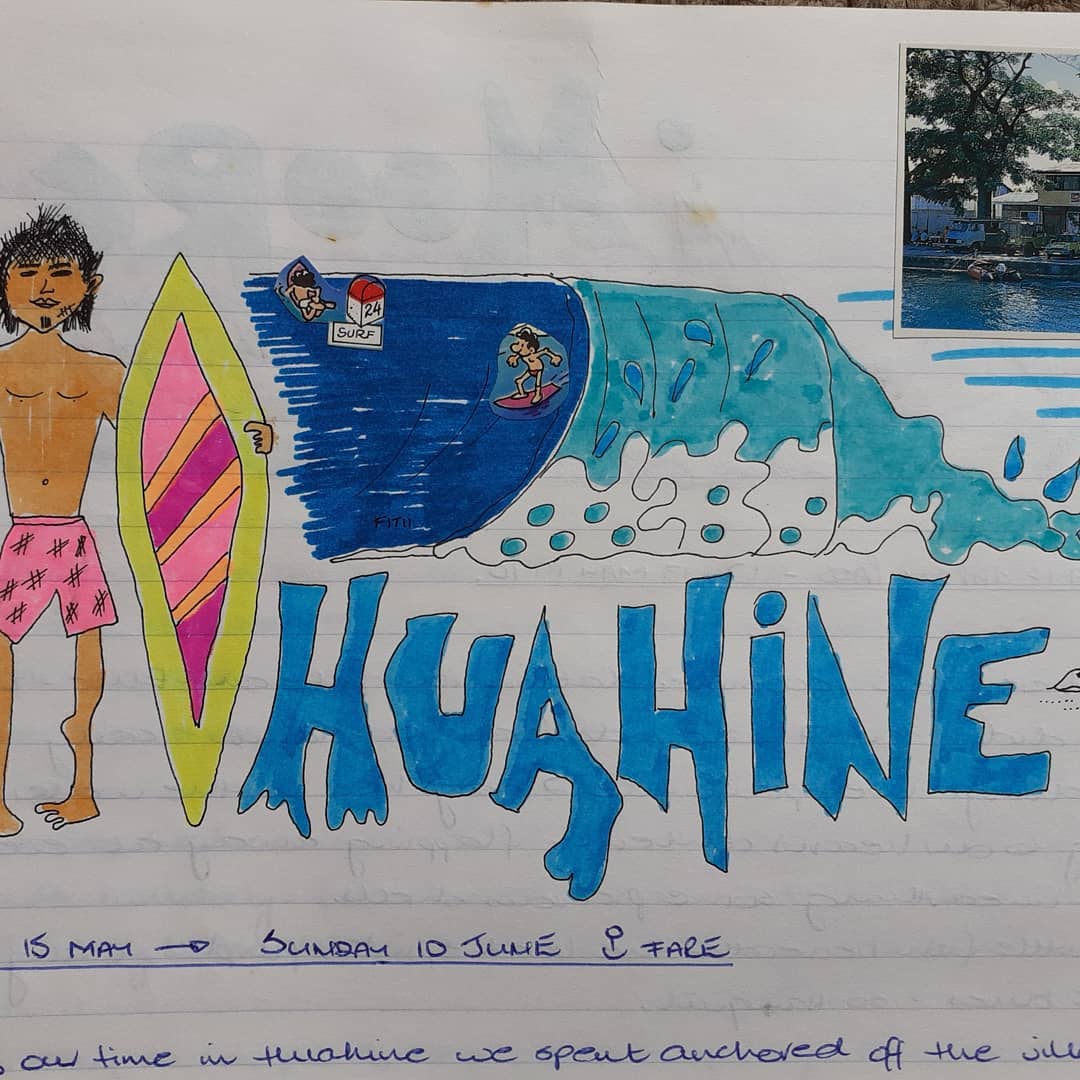 24
SURF
FITII
HUAHiNE
15 MAY → SUNDAY 10 JUNE ⚓ FARE
our time in Huahine we spent anchored off the